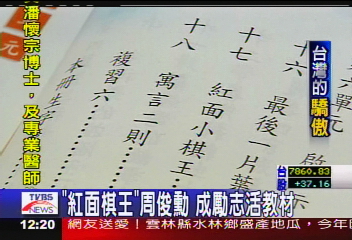 潘懷宗博士，及專業醫師
台灣的驕傲
元
十六
單元
最後一片葉
十七
紅面小棋王
十八
寓言二則
複習六
本冊生字
台股
7860.83
+37.16
TVBS
NEWS
"紅面棋王"周俊勳 成勵志活教材
12:20
網友送愛！雲林縣水林鄉盛產地瓜，今年